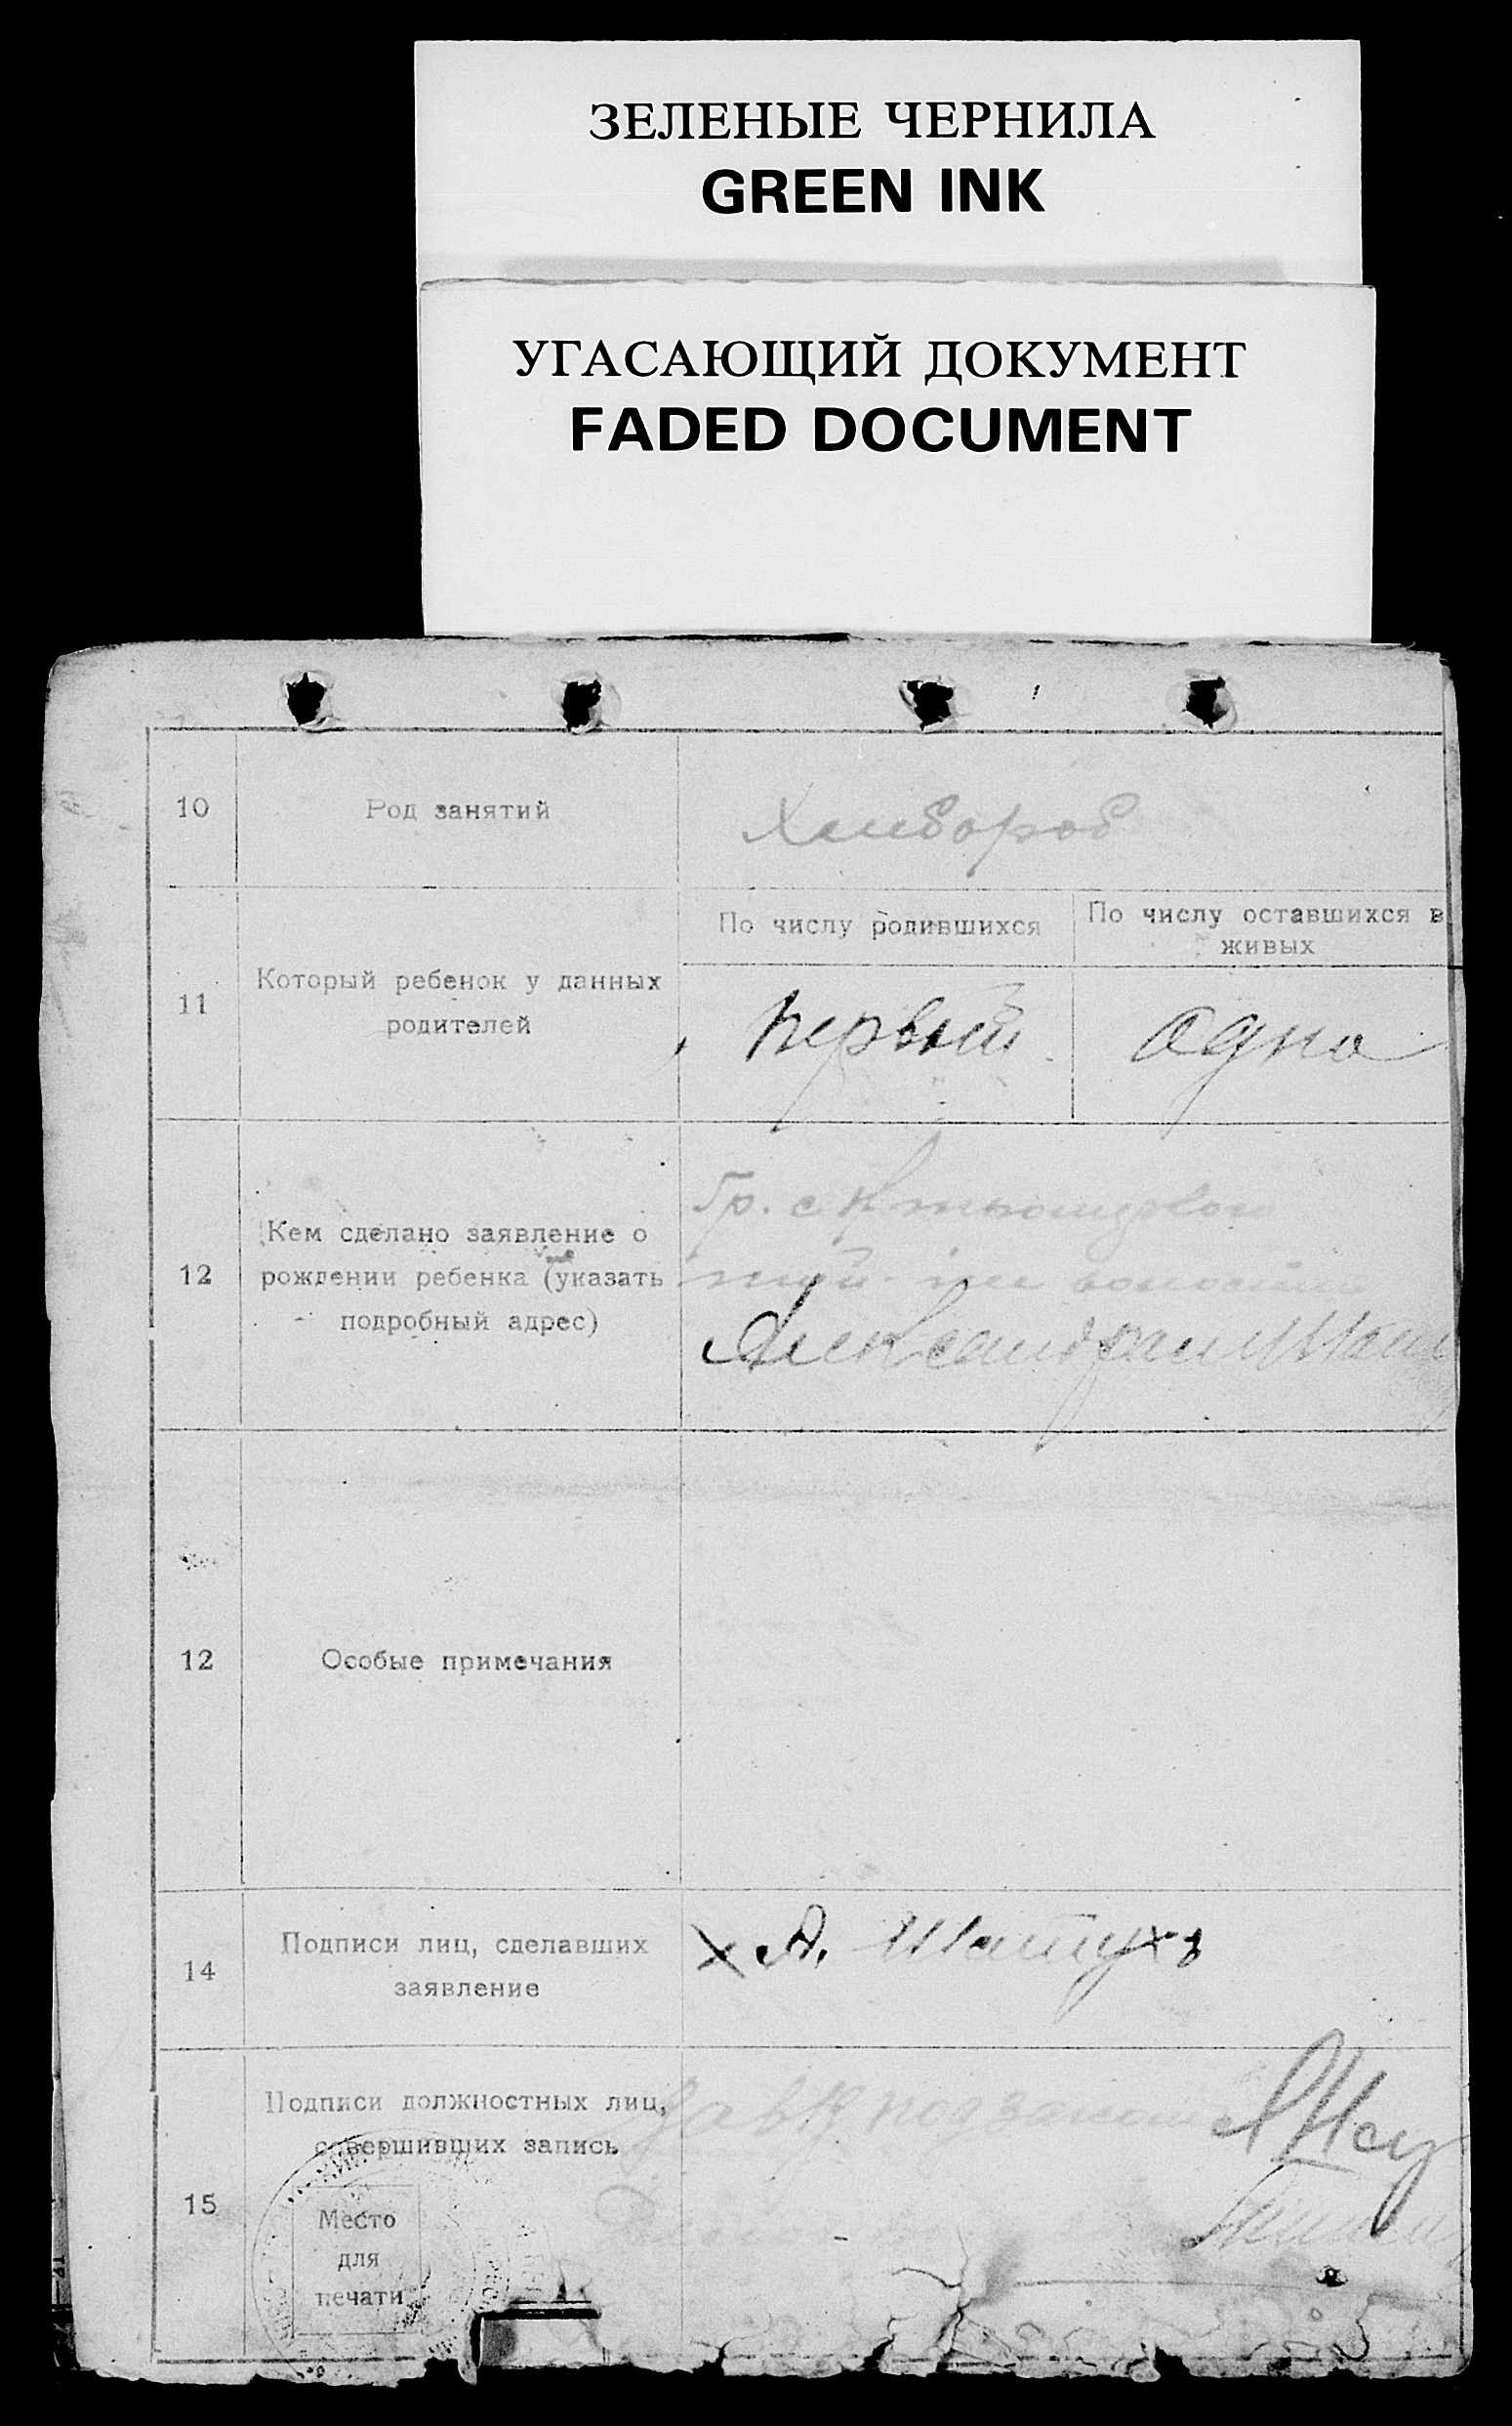 ЗЕЛЕНЫЕ ЧЕРНИЛА
GREEN INK
УГАСАЮЩИЙ ДОКУМЕНТ
FADED DOCUMENT
10
Род занятий
Хлебороб
11
Который ребенок у данных
родителей
По числу родившихся
По числу оставшихся в
живых
первый
одно
12
Кем сделано заявление о
рождении ребенка (указать
подробный адрес)
Гр. с
Александром
12
Особые примечания
14
Подписи лиц, сделавших
заявление
х А. Шатух
15
Подписи должностных лиц,
совершивших запись
Место
для
печати